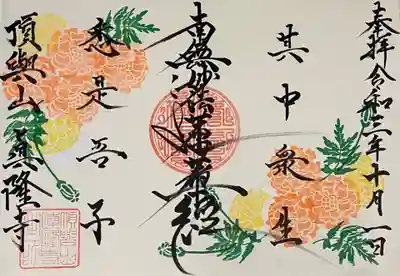 奉拝 令和三年十月一日
其中衆生
南無妙法蓮華経
悉是吾子
頂與山真隆寺